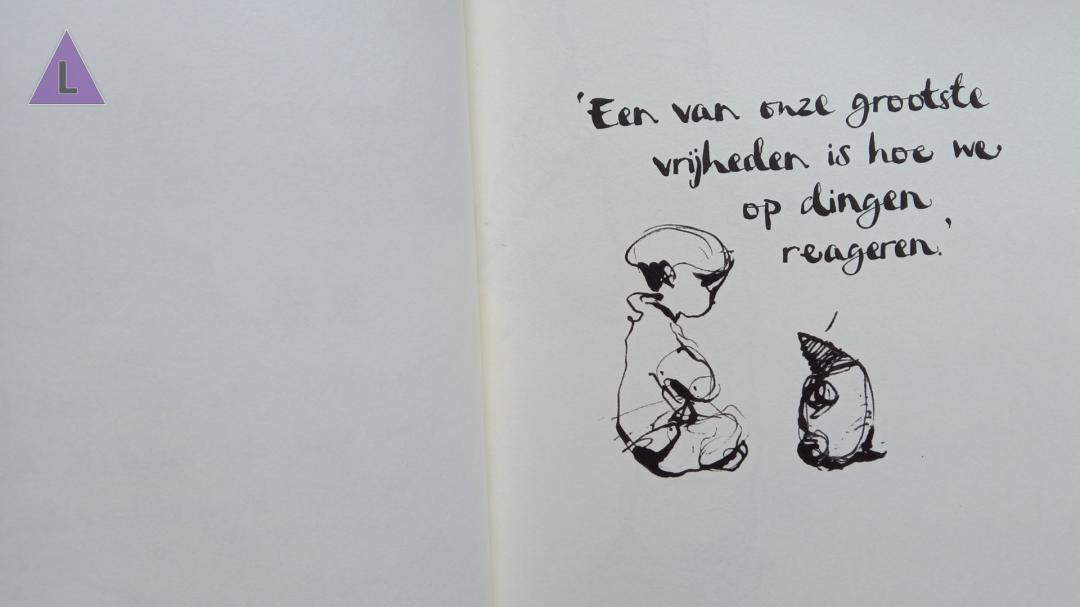 L
'Een van onze grootste
vrijheden is hoe we
op dingen
reageren.'